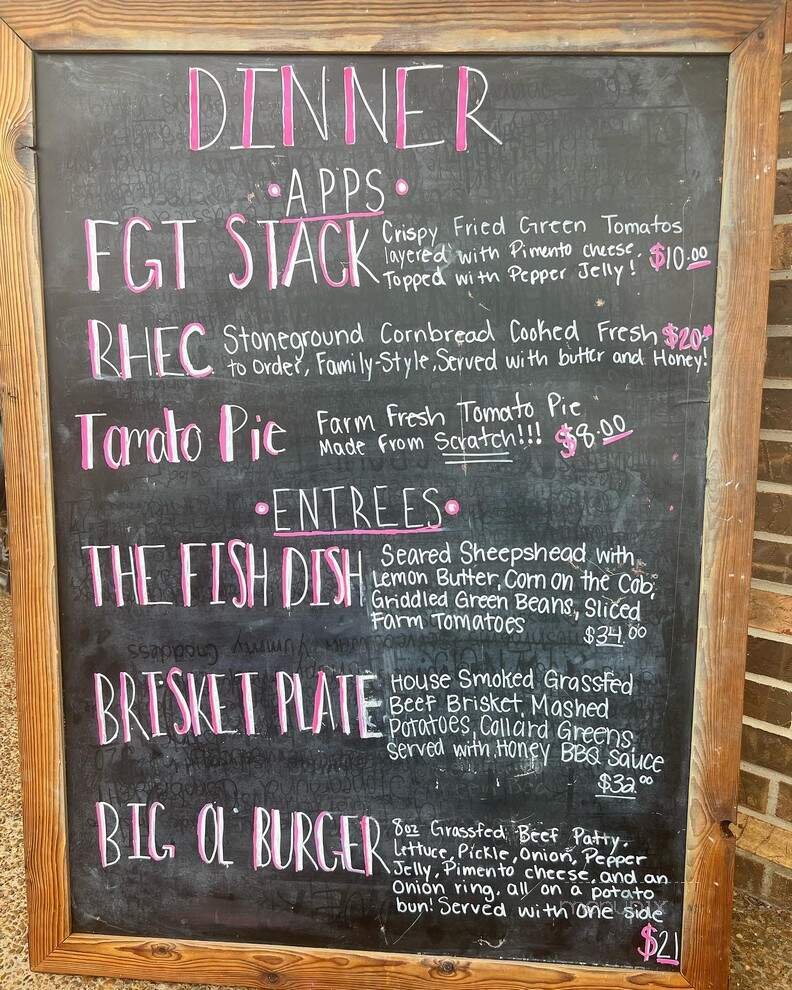 DINNER
• APPS •
FGT STACK Crispy Fried Green Tomatos
layered with Pimento cheese. $10.00
Topped with Pepper Jelly!
RHEC Stoneground Cornbread Cooked Fresh $20
to Order, Family-Style, Served with butter and Honey!
Tomato Pie Farm Fresh Tomato Pie
Made From Scratch!!! $8.00
• ENTREES •
THE FISH DISH Seared Sheepshead with
Lemon Butter, Corn on the Cob,
Griddled Green Beans, Sliced
Farm Tomatoes $34.00
BRISKET PLATE House Smoked Grassfed
Beef Brisket, Mashed
Potatoes, Collard Greens,
Served with Honey BBQ Sauce
$32.00
BIG OL' BURGER 8oz Grassfed Beef Patty.
Lettuce, Pickle, Onion, Pepper
Jelly, Pimento cheese, and an
Onion ring, all on a potato
bun! Served with one side
$21